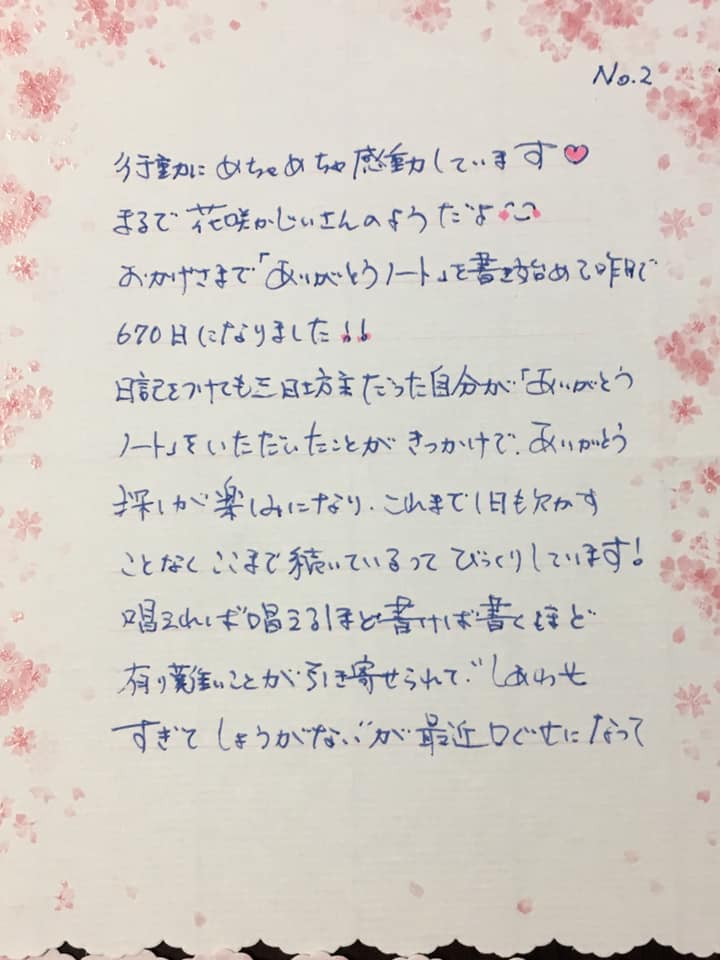 No.2
行動にめちゃめちゃ感動しています♥
まるで花咲かじいさんのようだよ
おかげさまで「ありがとうノート」を書き始めて昨日で
670日になりました!!
日記をつけても三日坊主だった自分が「ありがとう
ノート」をいただいたことがきっかけで、ありがとう
探しが楽しみになり、これまで1日も欠かす
ことなくここまで続いているってびっくりしています!
唱えれば唱えるほど書けば書くほど
有り難いことが引き寄せられて、"しあわせ
すぎてしょうがない"が最近口ぐせになって